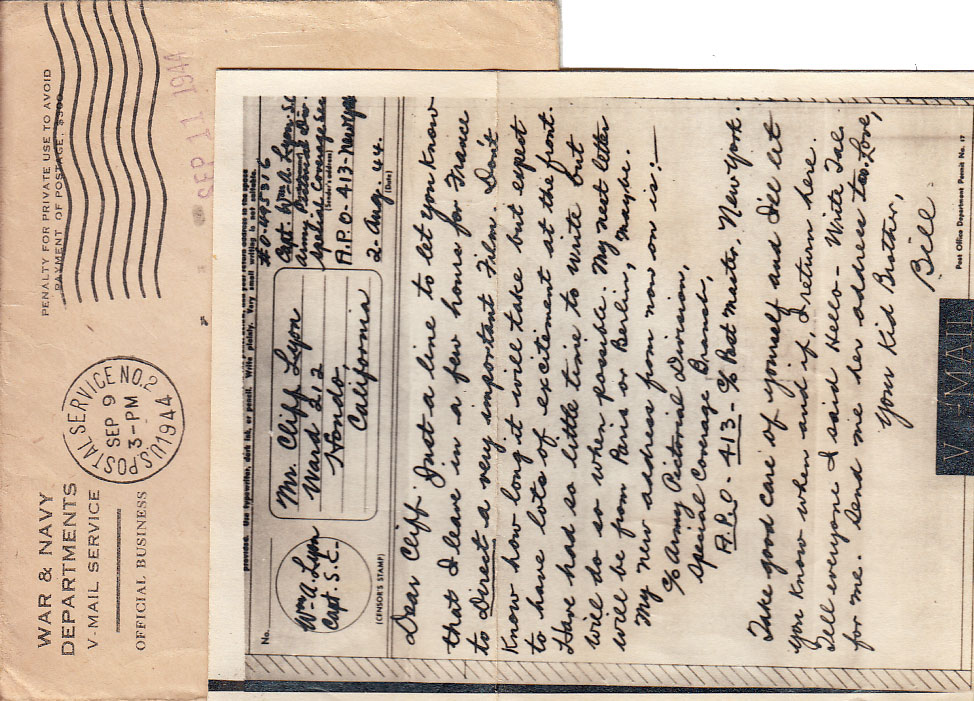 WAR & NAVY
DEPARTMENTS
V-MAIL SERVICE
OFFICIAL BUSINESS
U.S. POSTAL SERVICE NO. 2
SEP 9
3-PM
1944
PENALTY FOR PRIVATE USE TO AVOID
PAYMENT OF POSTAGE, $300
SEP 11 1944
provided. Use typewriter, dark ink, or pencil. Write plainly. Very small writing is not suitable.
No.
Wm. A. Lyon
Capt. S.C.
(CENSOR'S STAMP)
Mr. Cliff Lyon
Ward 212
Hondo,
California
Capt. Wm. A. Lyon. S.C.
Army Pictorial Div.
Special Coverage Sec
(Sender's address)
A.P.O. 413 - New York
2 - Aug. 44.
(Date)
Dear Cliff. Just a line to let you know
that I leave in a few hours for France
to Direct a very important Film. Don't
know how long it will take but expect
to have lots of excitement at the front.
Have had so little time to write but
will do so when possible. My next letter
will be from Paris or Berlin, maybe.
My new address from now on is:—
c/o Army Pictorial Division,
Special Coverage Branch,
A.P.O. - 413 - c/o Post Master, New York.
Take good care of yourself and I'll let
you know when and if, I return here.
Tell everyone I said Hello - Write Tali
for me. Send me her address too. Love,
Your Kid Brother,
Bill
V-MAIL
Post Office Department Permit No. 17